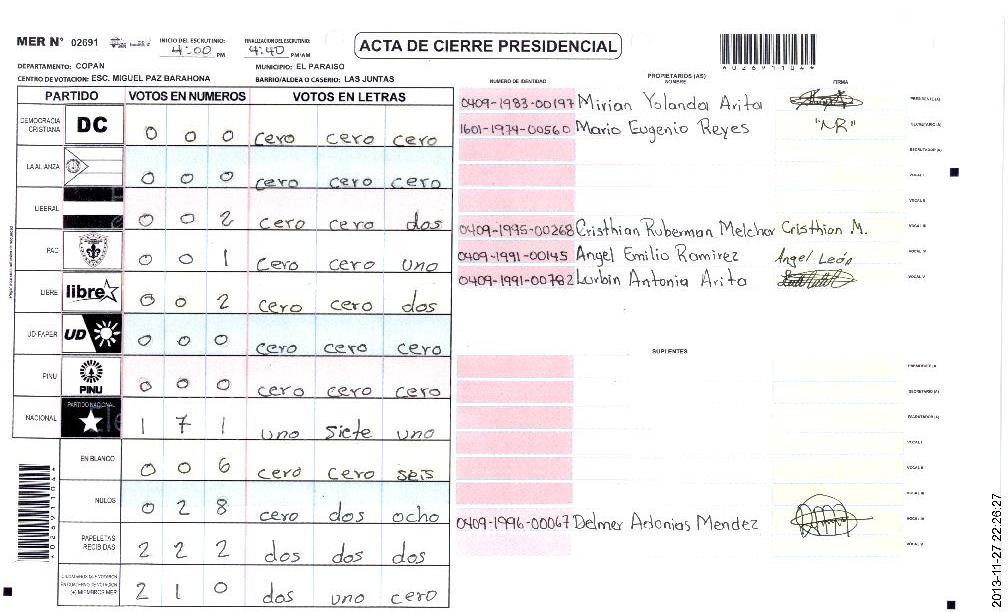 MER N° 02691
INICIO DEL ESCRUTINIO: 4:00 PM
FINALIZACION DEL ESCRUTINIO: 4:40 PM/AM
ACTA DE CIERRE PRESIDENCIAL
*02691104*
DEPARTAMENTO: COPAN
MUNICIPIO: EL PARAISO
CENTRO DE VOTACION: ESC. MIGUEL PAZ BARAHONA
BARRIO/ALDEA O CASERIO: LAS JUNTAS
PARTIDO VOTOS EN NUMEROS VOTOS EN LETRAS
DEMOCRACIA CRISTIANA DC 0 0 0 cero cero cero
LA ALIANZA 0 0 0 cero cero cero
LIBERAL 0 0 2 cero cero dos
PAC 0 0 1 cero cero uno
LIBRE libre 0 0 2 cero cero dos
UD FAPER UD 0 0 0 cero cero cero
PINU PINU 0 0 0 cero cero cero
NACIONAL PARTIDO NACIONAL 1 7 1 uno siete uno
EN BLANCO 0 0 6 cero cero seis
NULOS 0 2 8 cero dos ocho
PAPELETAS RECIBIDAS 2 2 2 dos dos dos
CIUDADANOS QUE VOTARON EN CUADERNO DE VOTACION (+) MIEMBROS MER 2 1 0 dos uno cero
*02691104*
PROPIETARIOS (AS)
NUMERO DE IDENTIDAD NOMBRE FIRMA
0409-1983-00197 Mirian Yolanda Arita PRESIDENTE (A)
1601-1974-00560 Mario Eugenio Reyes SECRETARIO (A)
ESCRUTADOR (A)
VOCAL I
VOCAL II
0409-1995-00268 Cristhian Ruberman Melchor Cristhian M. VOCAL III
0409-1991-00145 Angel Emilio Ramirez Angel León VOCAL IV
0409-1991-00782 Lurbin Antonia Arita VOCAL V
SUPLENTES
PRESIDENTE (A)
SECRETARIO (A)
ESCRUTADOR (A)
VOCAL I
VOCAL II
VOCAL III
0409-1996-00067 Delmer Adonias Mendez VOCAL IV
VOCAL V
2013-11-27 22:26:27